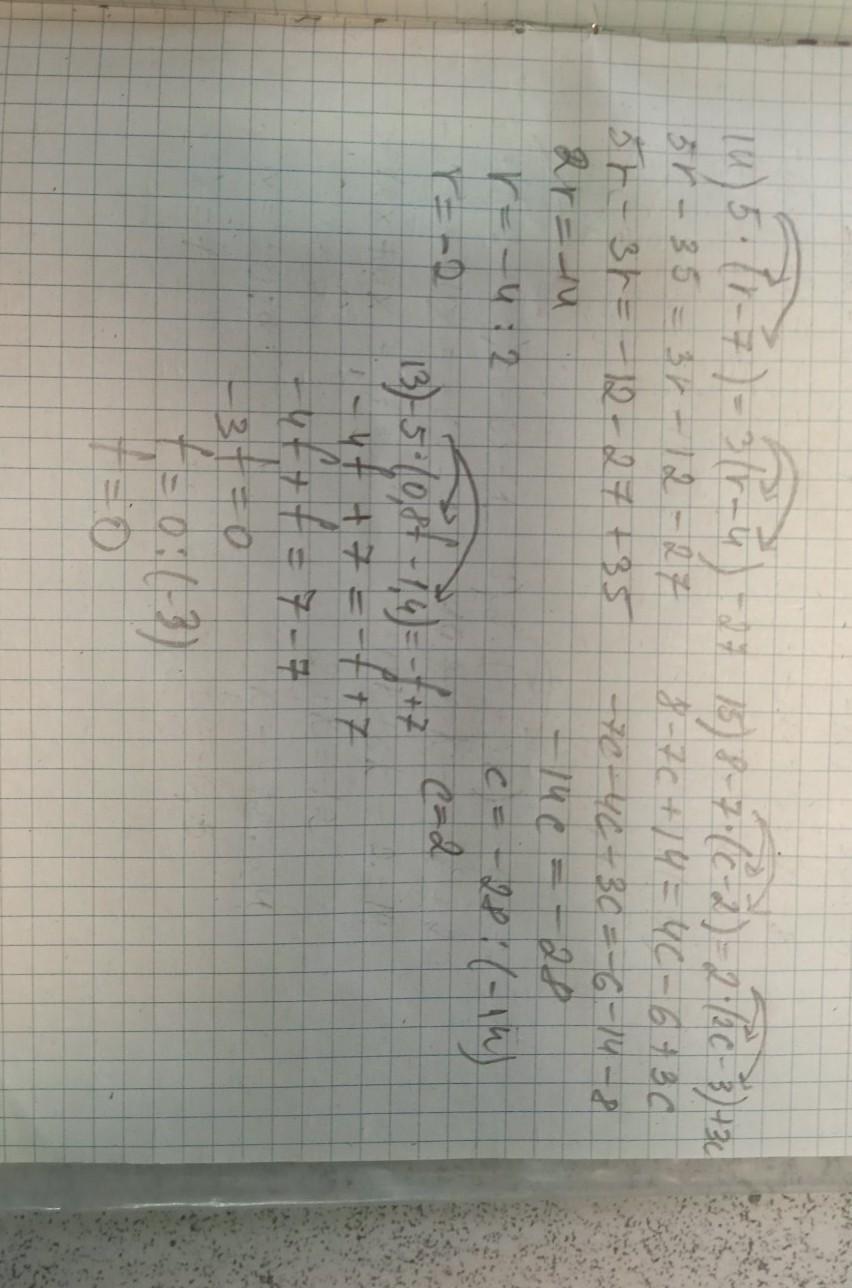 14) 5·(r-7)=3(r-4)-27
5r-35=3r-12-27
5r-3r=-12-27+35
2r=-4
r=-4:2
r=-2
13)-5·(0,8f-1,4)=-f+7
-4f+7=-f+7
-4f+f=7-7
-3f=0
f=0:(-3)
f=0
15) 8-7·(c-2)=2·(2c-3)+3c
8-7c+14=4c-6+3c
-7c-4c+3c=-6-14-8
-14c=-28
c=-28:(-14)
c=2